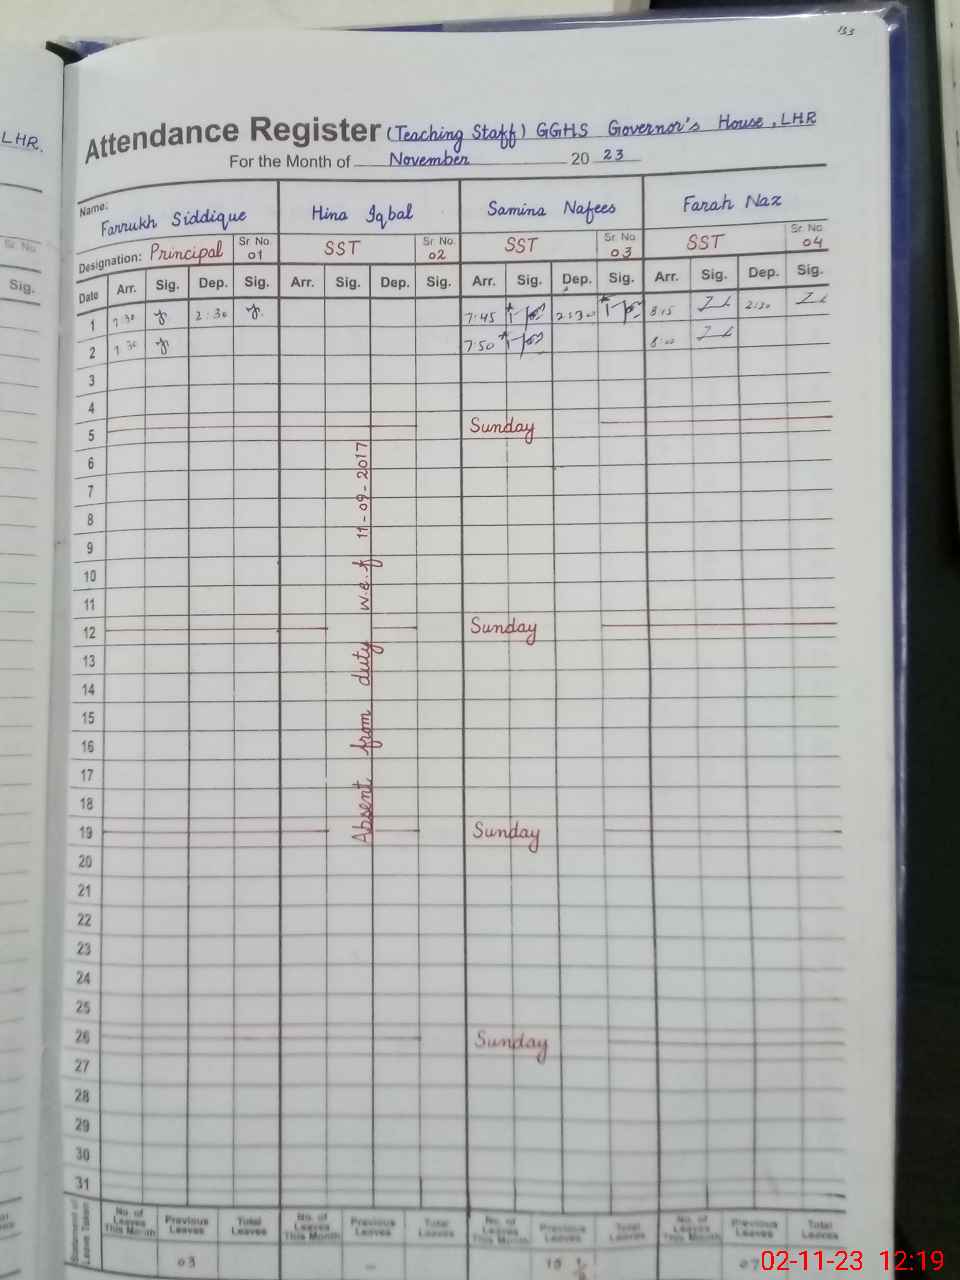 133
LHR.
Attendance Register (Teaching Staff) GGHS Governor's House, LHR
For the Month of November 20 23
Name: Farrukh Siddique Hina Iqbal Samina Nafees Farah Naz
Designation: Principal Sr. No. 01 SST Sr. No. 02 SST Sr. No. 03 SST Sr. No. 04
Sr. No.
Sig.
Date Arr. Sig. Dep. Sig. Arr. Sig. Dep. Sig. Arr. Sig. Dep. Sig. Arr. Sig. Dep. Sig.
1 7:30 2:30 7:45 2:30 8:15 2:30
2 7:30 7:50 8:00
3
4
5 Sunday
6
7
8
9
10
11
12 Sunday
13
14
15
16
17
18
19 Sunday
20
21
22
23
24
25
26 Sunday
27
28
29
30
31
Absent from duty w.e.f 11-09-2017
Statement of Leave Taken
No. of Leaves This Month Previous Leaves Total Leaves No. of Leaves This Month Previous Leaves Total Leaves No. of Leaves This Month Previous Leaves Total Leaves No. of Leaves This Month Previous Leaves Total Leaves
03 -
02-11-23 12:19